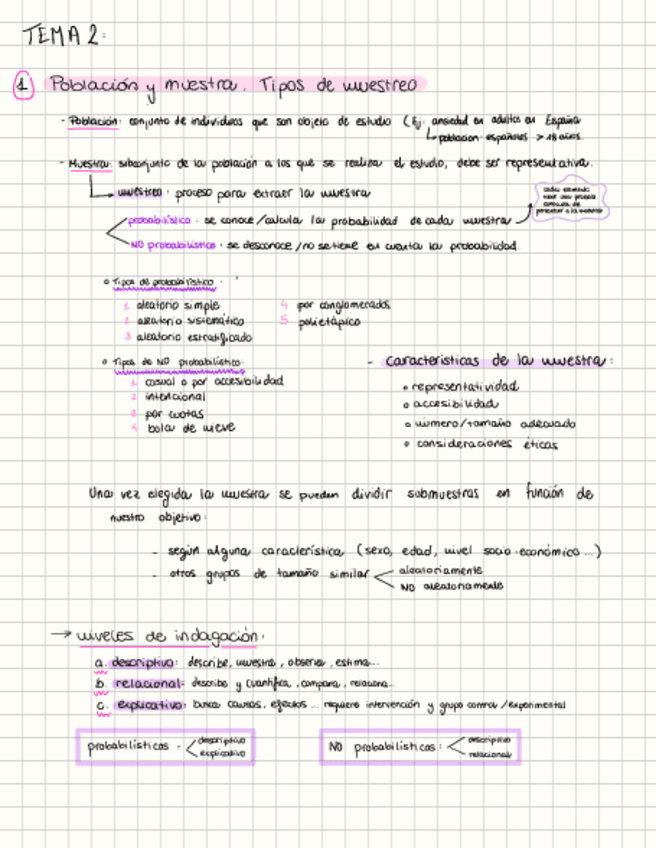 TEMA 2:
1 Población y muestra. Tipos de muestreo
- Población: conjunto de individuos que son objeto de estudio (Ej: ansiedad en adultos en España
población: españoles > 18 años.
- Muestra: subconjunto de la población a los que se realiza el estudio, debe ser representativa.
muestreo: proceso para extraer la muestra
probabilístico: se conoce/calcula la probabilidad de cada muestra
cada elemento tiene una
pertenecer a la muestra
NO probabilístico: se desconoce/no se tiene en cuenta la probabilidad.
Tipos de probabilístico:
1. aleatorio simple
2. aleatorio sistemático
3. aleatorio estratificado
4. por conglomerados
5. polietápico
Tipos de NO probabilístico:
1. casual o por accesibilidad
2. intencional
3. por cuotas
4. bola de nieve
- características de la muestra:
representatividad
accesibilidad
número/tamaño adecuado
consideraciones éticas
Una vez elegida la muestra se pueden dividir submuestras en función de
nuestro objetivo:
- según alguna característica (sexo, edad, nivel socio-económico...)
- otros grupos de tamaño similar
aleatoriamente
NO aleatoriamente
→ niveles de indagación:
a. descriptivo: describe, muestra, observa, estima...
b. relacional: describe y cuantifica, compara, relaciona...
c. explicativo: busca causas, efectos... requiere intervención y grupo control/experimental
probabilísticos:
descriptivo
explicativo
NO probabilísticos:
descriptivo
relacional